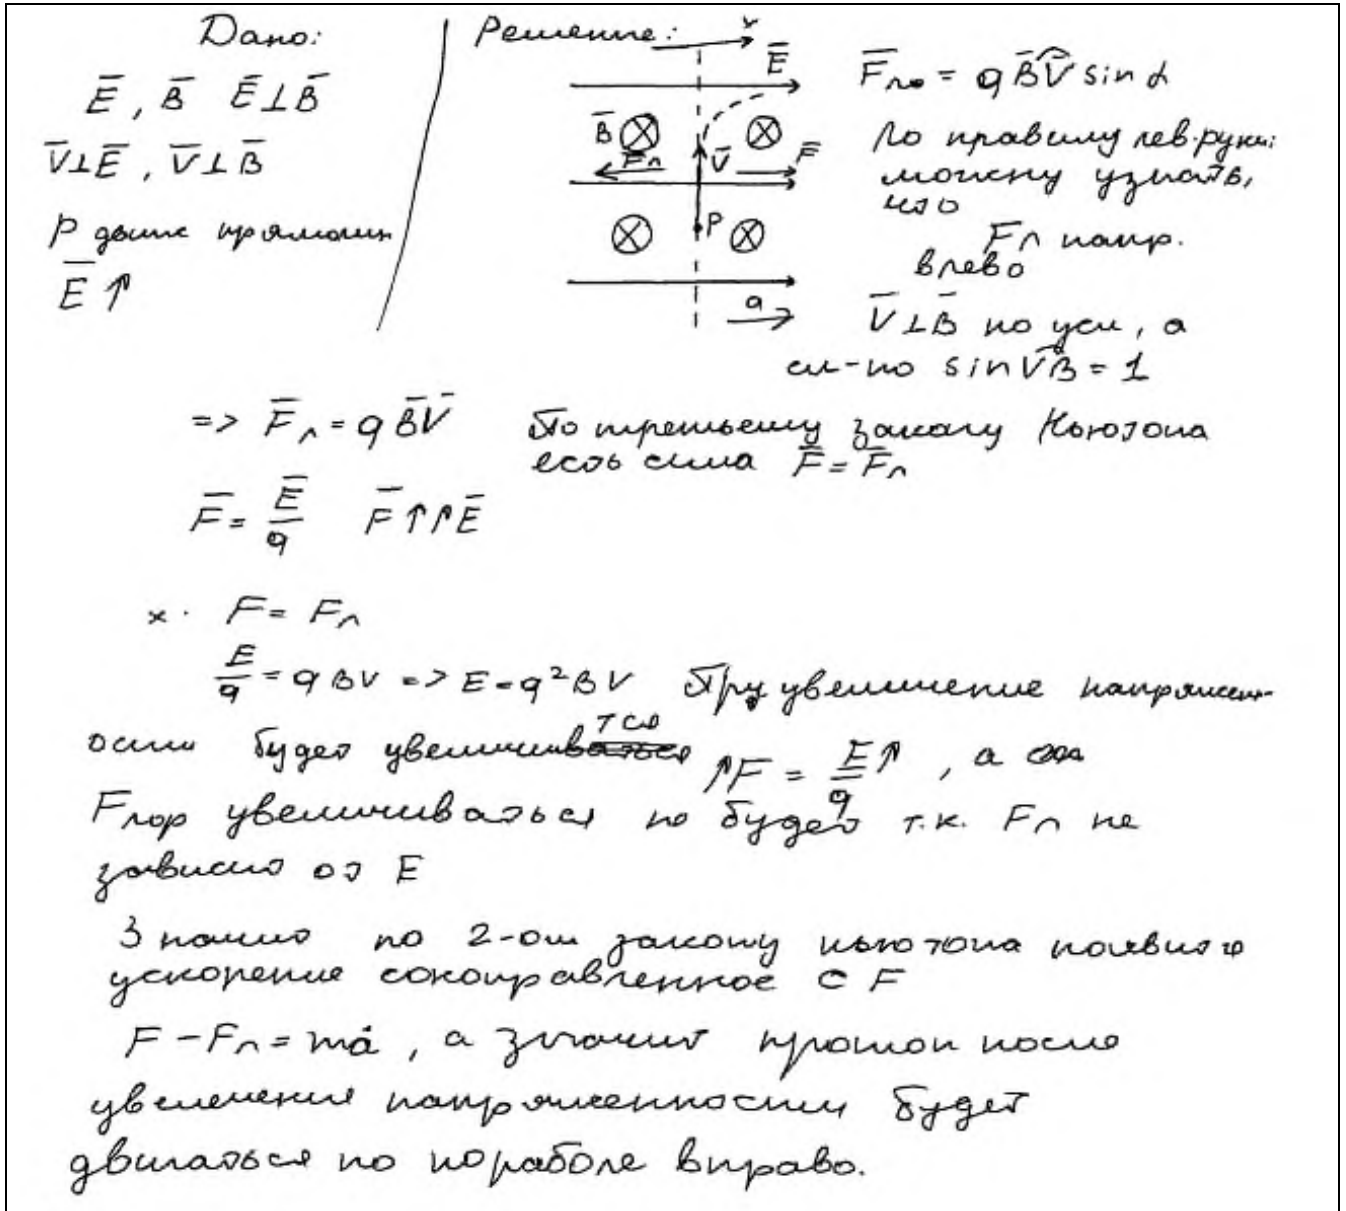 Дано:
E̅, B̅ E̅⊥B̅
V̅⊥E̅, V̅⊥B̅
P движ прямолин
E̅ ↑
Решение: x
E̅
B̅ ⊗ ⊗
F̅л V̅ F̅
⊗ P ⊗
a
F̅ло = q B̅V̅ sin α
По правилу лев.руки:
можону узнать,
что
Fл напр.
влево
V̅⊥B̅ по усл, а
сл-но sin V̅B̅ = 1
=> F̅л = q B̅V̅ По третьему закону Ньютона
есть сила F̅ = F̅л
F̅ = E̅/q F̅ ↑↑ E̅
x. F = Fл
E/q = q BV => E = q² BV При увеличение напряжен-
ости будет увеличиваться ↑F = E↑/q, а
Fлор увеличиваться не будет т.к. Fл не
зависит от E
Значит по 2-ом закону ньютона появится
ускорение сонаправленное с F
F - Fл = ma, а значит протон после
увеличения напряженности будет
двигаться по параболе вправо.